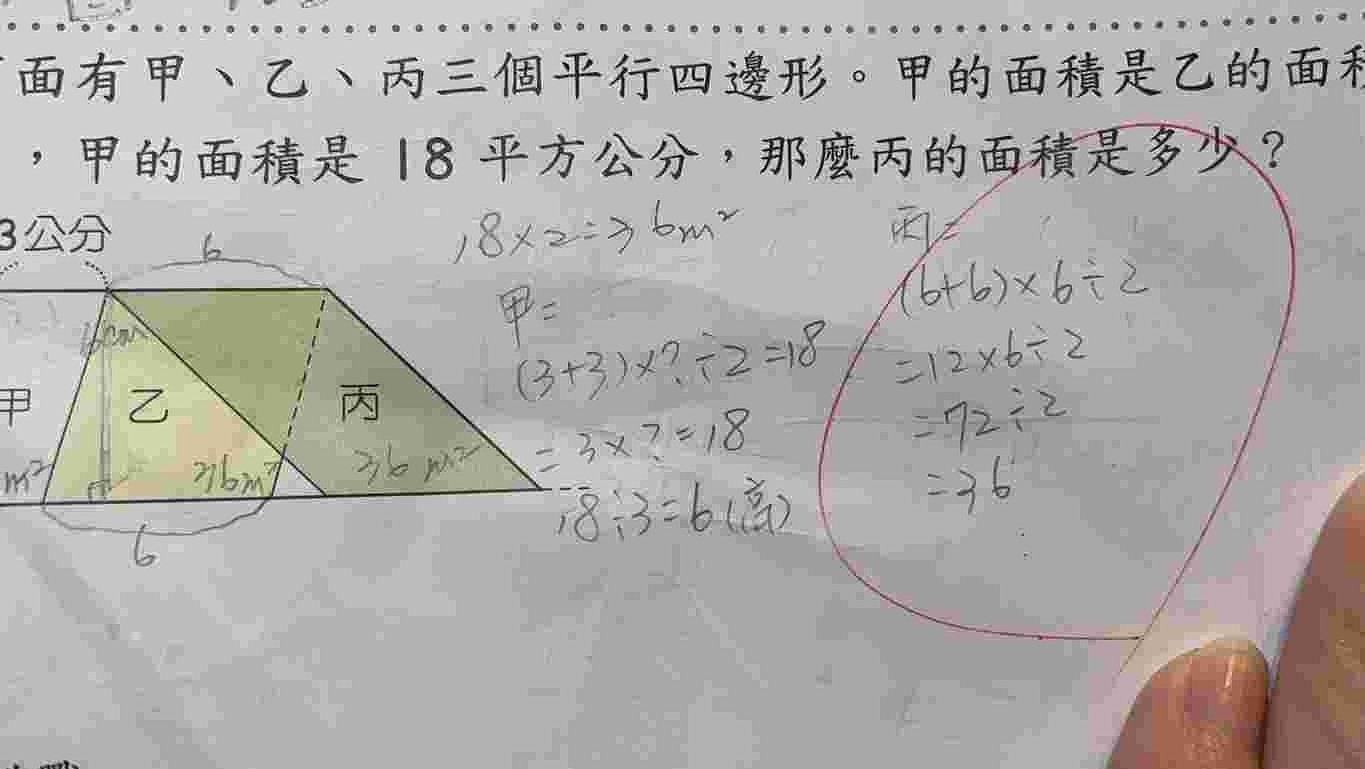 面有甲、乙、丙三個平行四邊形。甲的面積是乙的面積
，甲的面積是 18 平方公分，那麼丙的面積是多少？
3公分
6
18×2=36m²
丙=
甲=
(6+6)×6÷2
6cm
(3+3)×?÷2=18
=12×6÷2
甲
乙
丙
=3×?=18
=72÷2
m²
36m²
36 m²
18÷3=6(高)
=36
6